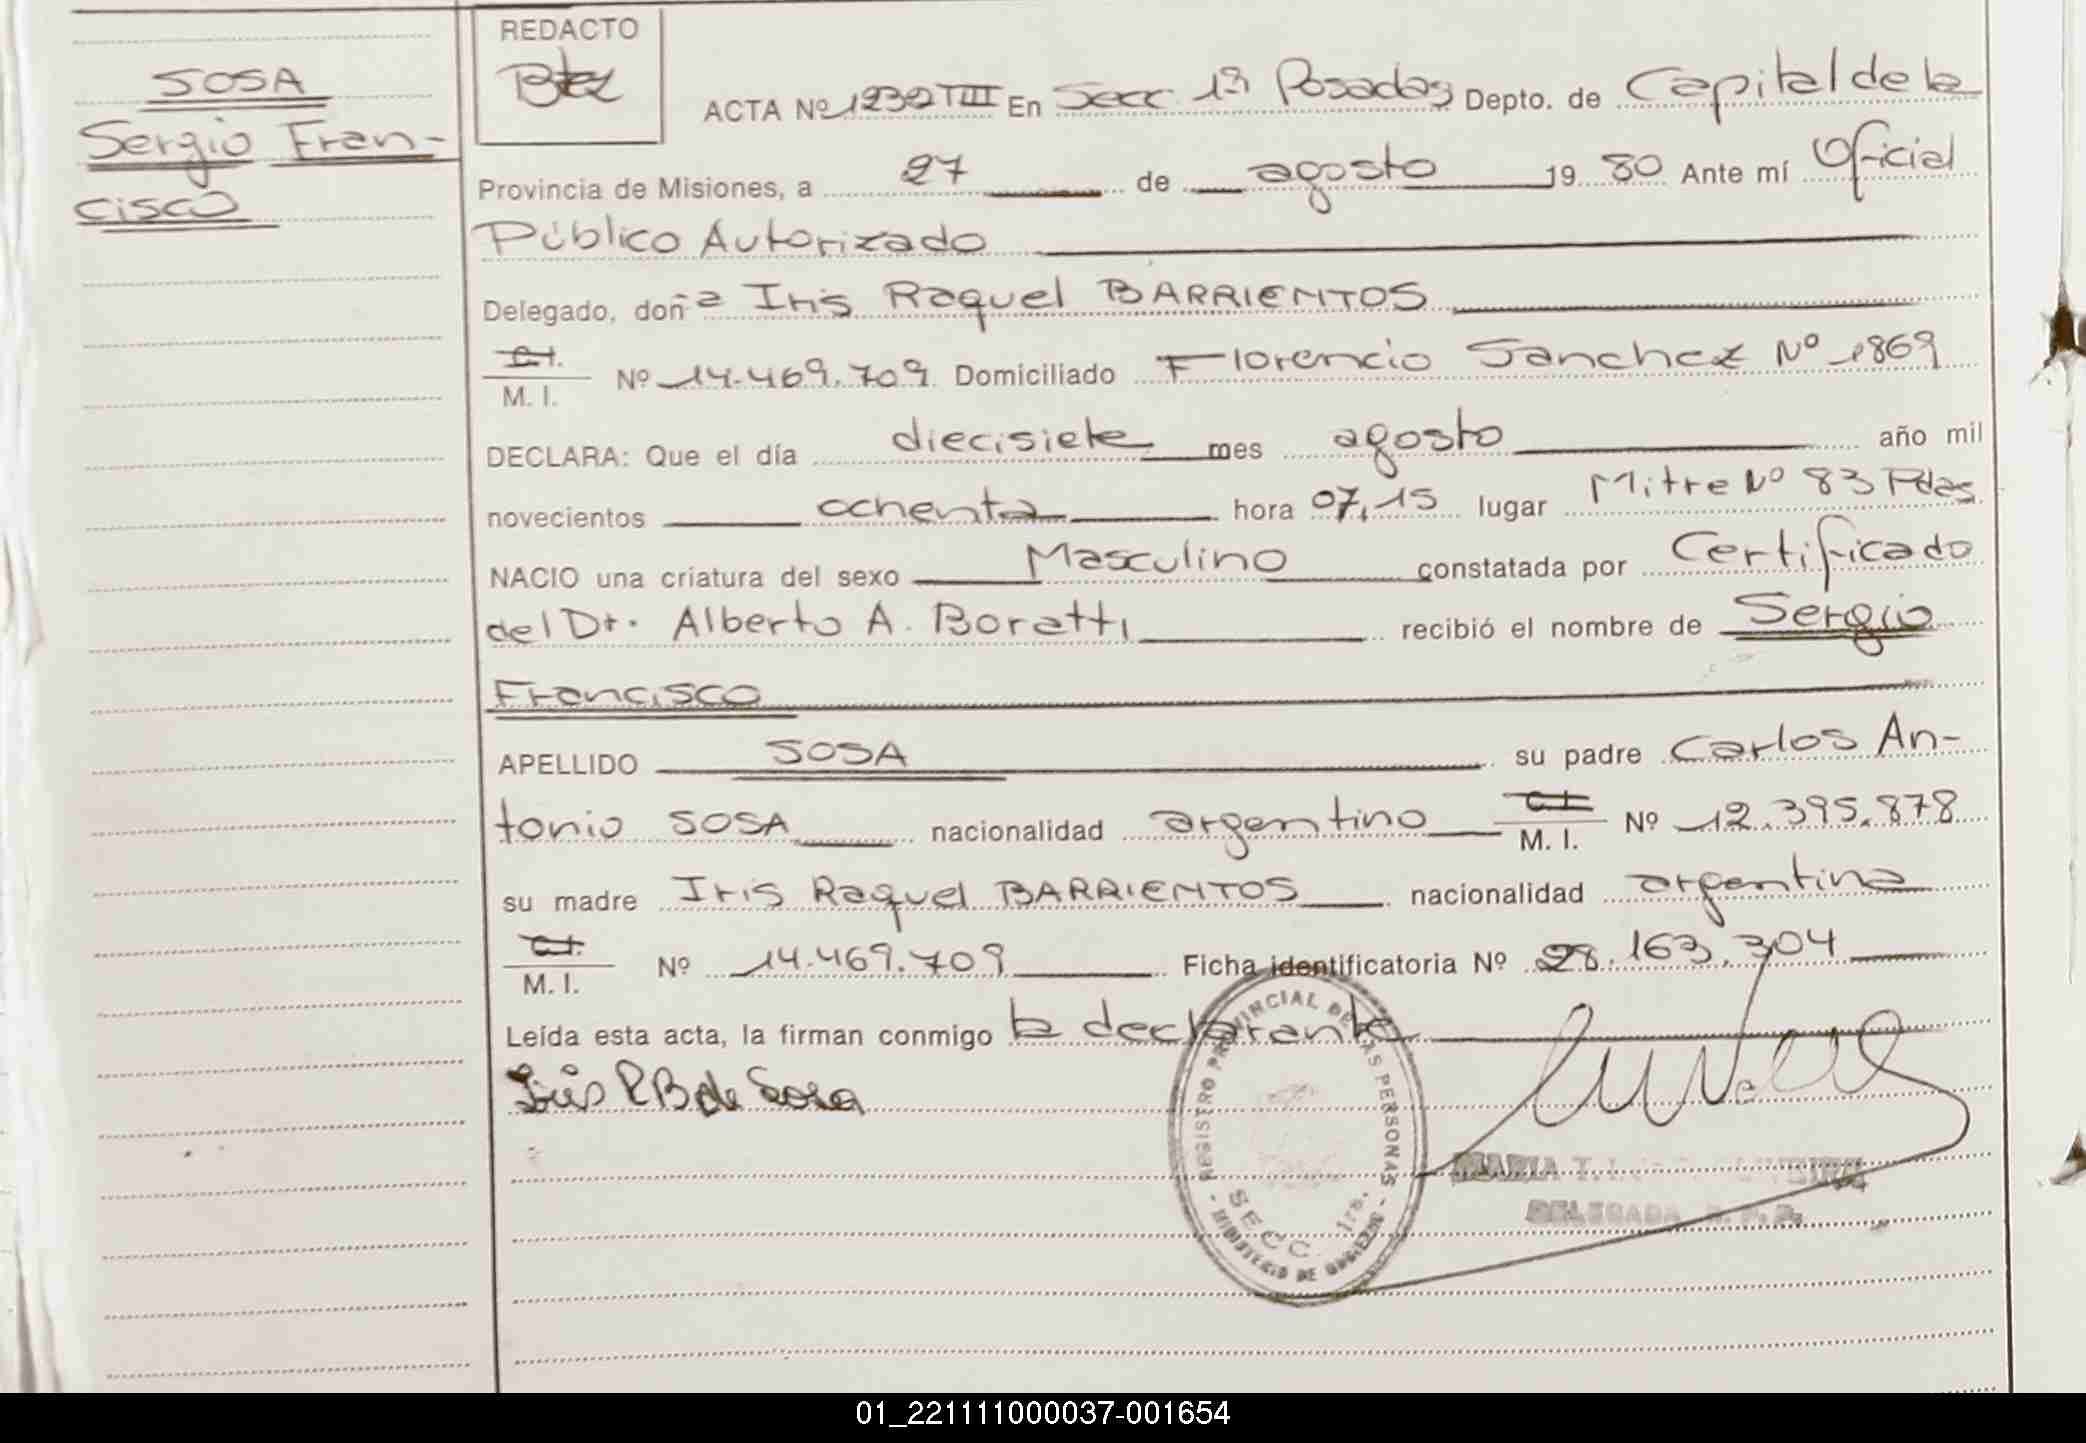 SOSA
Sergio Fran-
cisco
REDACTO
ACTA Nº 1232 TIII En Secc 1ª Posadas Depto. de Capital de la
Provincia de Misiones, a 27 de agosto 19 80 Ante mí Oficial
Público Autorizado
Delegado, doñª Iris Raquel BARRIENTOS
C.I.
M. I. Nº 14.469.709 Domiciliado Florencio Sanchez Nº 1869
DECLARA: Que el día diecisiete mes agosto año mil
novecientos ochenta hora 07,15 lugar Mitre Nº 83 Pdas
NACIO una criatura del sexo Masculino constatada por Certificado
del Dr. Alberto A. Boratti recibió el nombre de Sergio
Francisco
APELLIDO SOSA su padre Carlos An-
tonio SOSA nacionalidad argentino C.I. M. I. Nº 12.395.878
su madre Iris Raquel BARRIENTOS nacionalidad argentina
C.I.
M. I. Nº 14.469.709 Ficha identificatoria Nº 28.163.304
Leída esta acta, la firman conmigo la declarante
Iris R B de Sosa
REGISTRO PROVINCIAL DE LAS PERSONAS
SECC. 1ra.
MINISTERIO DE GOBIERNO
MARIA
DELEGADA R. P. P.
01_221111000037-001654